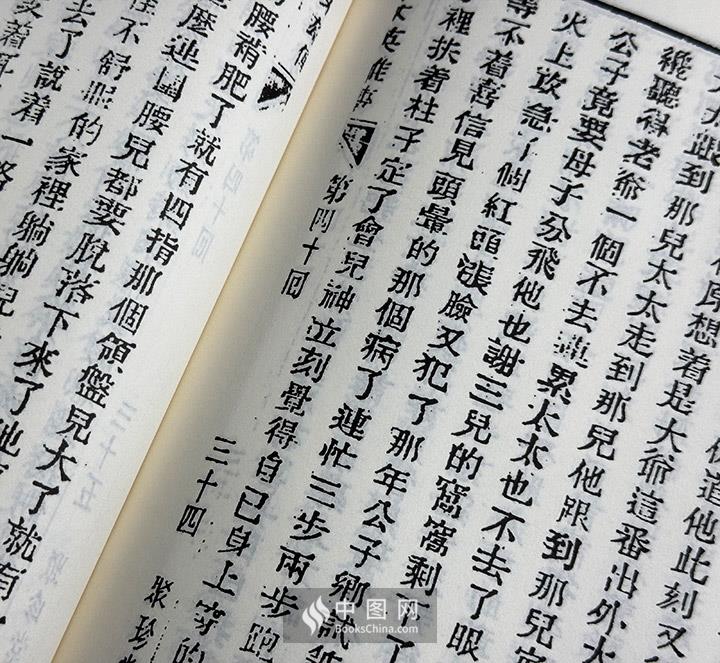 道他此刻又
原想着是大爺這番出外太
太太跟到那兒太太走到那兒他跟到那兒
纔聽得老爺一個不去連累太太也不去了眼
公子竟要母子分飛他也謝三兒的窩窩剩下了
火上攻急了個紅頭漲臉又犯了那年公子鄉試
等不着喜信見頭暈的那個病了連忙三步兩步跑
裡扶着柱子定了會兒神立刻覺得自己身上等的
第四十回
三十四
聚珍
腰褃肥了就有四指那個領盤兒大了就有
麼連圍腰兒都要脫落下來了他
不舒服的家裡躺躺兒
去了說着一路
中图网
BooksChina.com